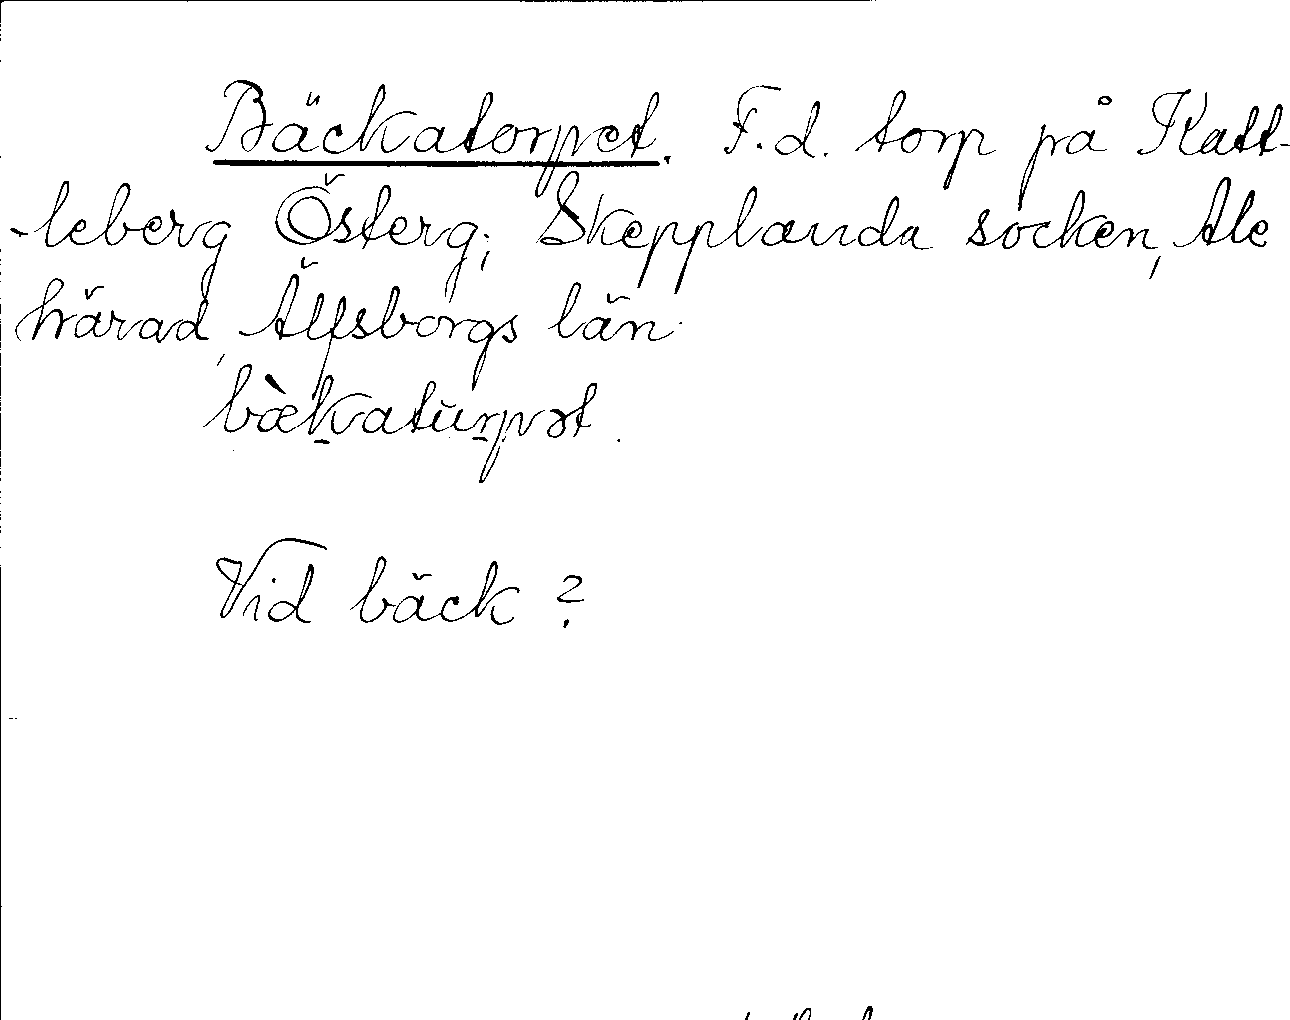 Bäckatorpet. F.d. torp på Katt-
-leberg Österg; Skepplanda socken, Ale
härad, Älfsborgs län.
bæ̀k̠atur̠pət.
Vid bäck?